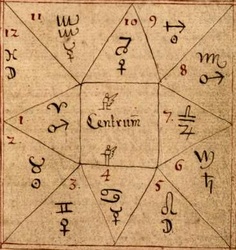 11
10
9
12
♓
☽
☿
♀
♐
♏
♂
8
1
♈
♂
Centrum
7
♎
2
♉
☉
3
♊
♀
4
♋
☿
5
♌
☽
6
♄